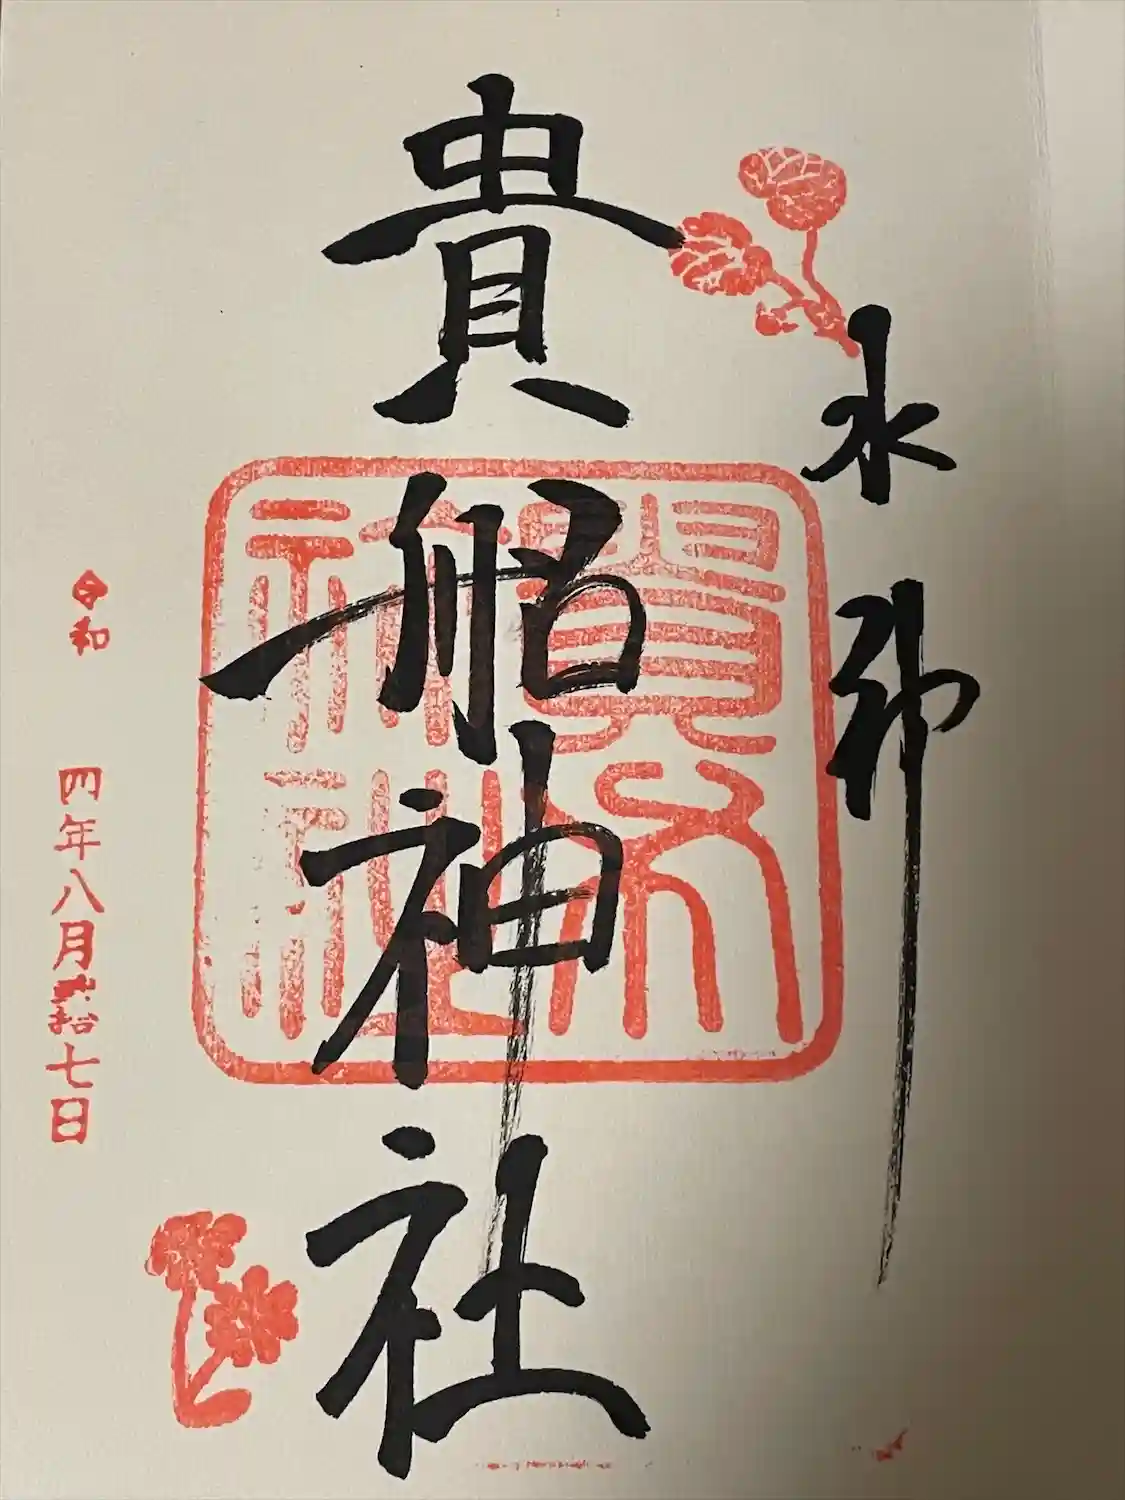 水神
貴船神社
貴布祢社
令和四年八月弐拾七日